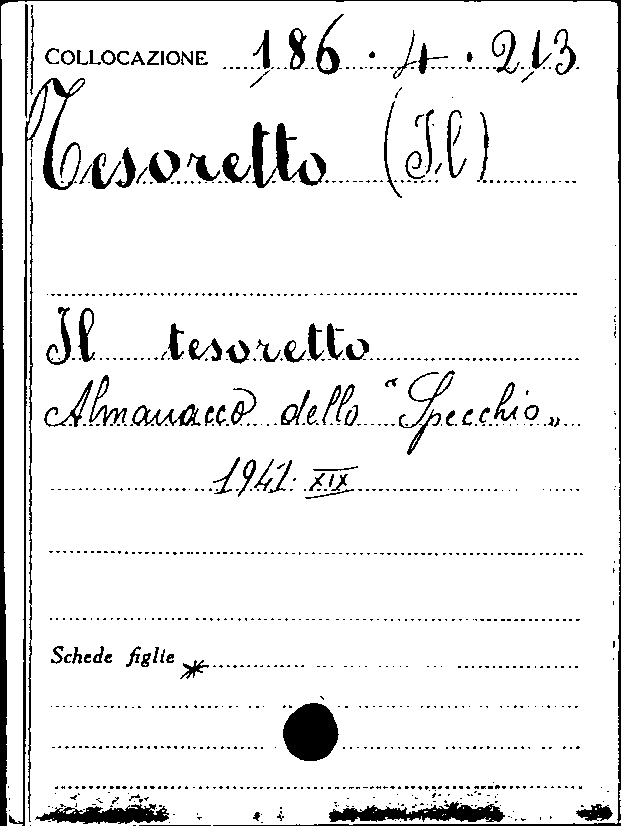 COLLOCAZIONE 186.4.213
Tesoretto (Il)
Il tesoretto
Almanacco dello "Specchio"
1941. XIX
Schede figlie *